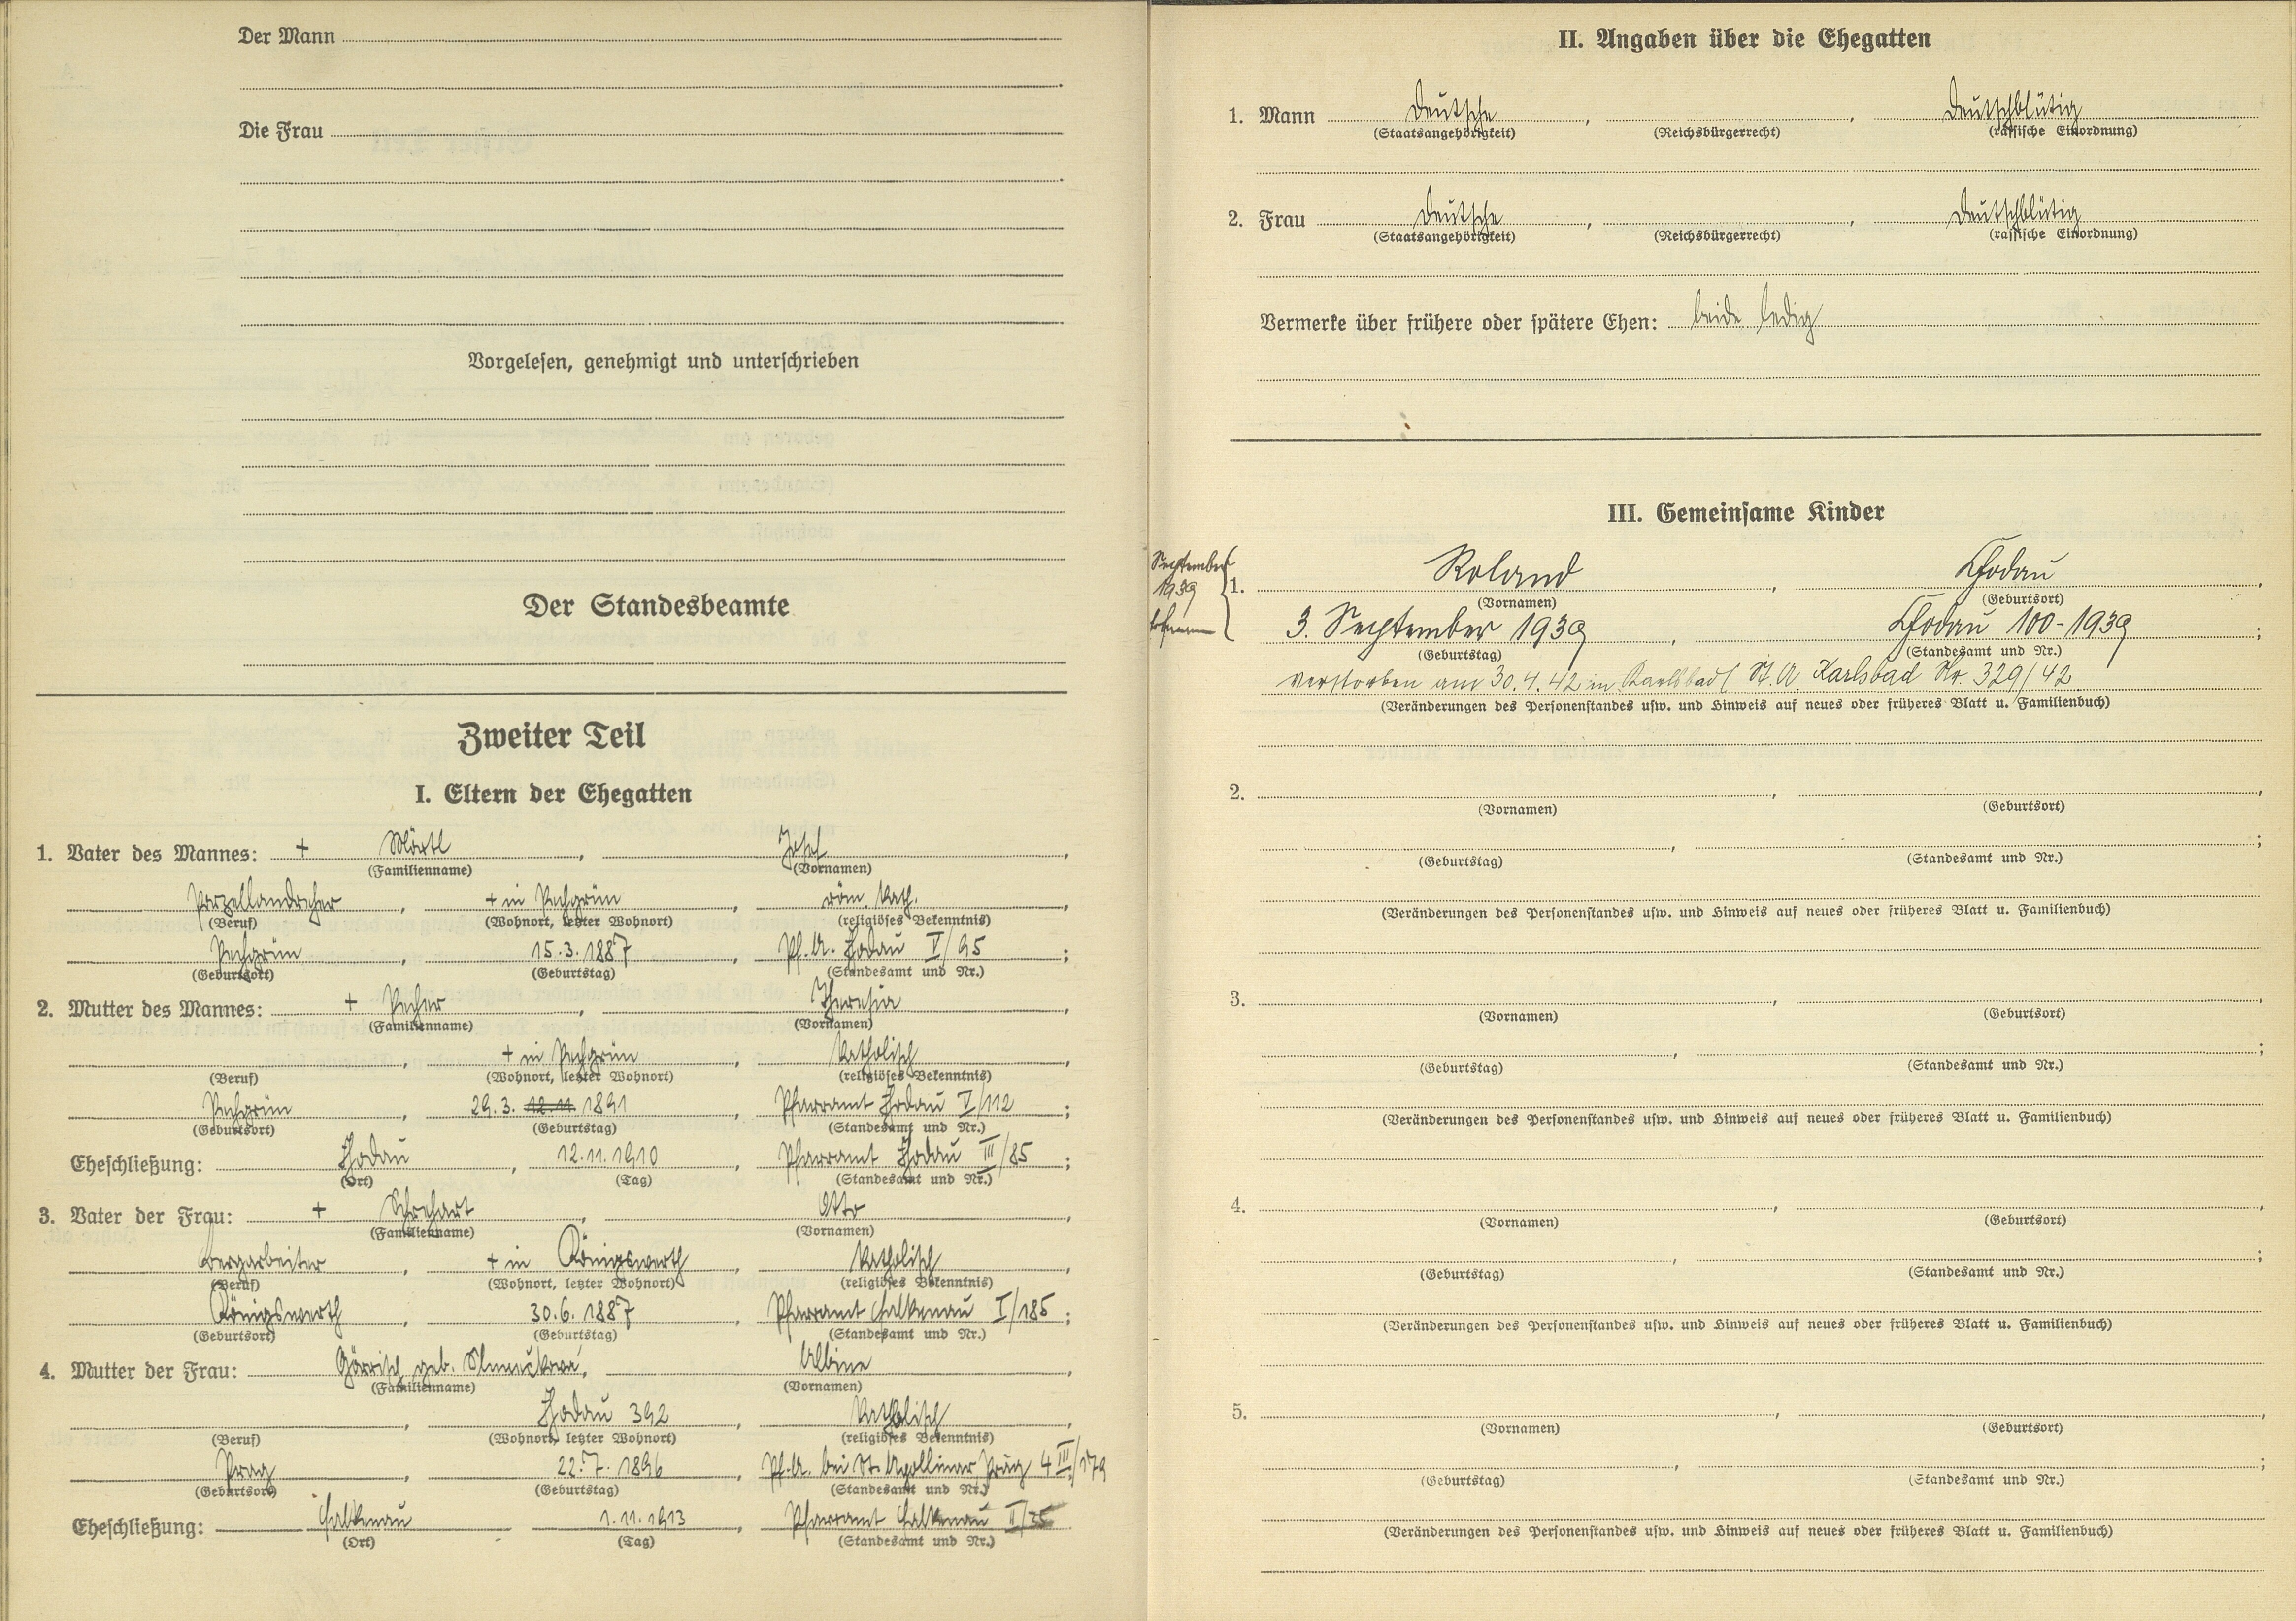 Der Mann
Die Frau
Vorgelesen, genehmigt und unterschrieben
Der Standesbeamte
Zweiter Teil
I. Eltern der Ehegatten
1. Vater des Mannes: + Mörtl, Josef,
(Familienname) (Vornamen)
Porzellandreher, + in Pechgrün, röm. kath.,
(Beruf) (Wohnort, letzter Wohnort) (religiöses Bekenntnis)
Pechgrün, 15.3.1887, Pf.A. Chodau V/95;
(Geburtsort) (Geburtstag) (Standesamt und Nr.)
2. Mutter des Mannes: + Pecher, Theresia,
(Familienname) (Vornamen)
, + in Pechgrün, katholisch,
(Beruf) (Wohnort, letzter Wohnort) (religiöses Bekenntnis)
Pechgrün, 29.3. 12.11. 1891, Pfarramt Chodau V/112;
(Geburtsort) (Geburtstag) (Standesamt und Nr.)
Eheschließung: Chodau, 12.11.1910, Pfarramt Chodau III/85;
(Ort) (Tag) (Standesamt und Nr.)
3. Vater der Frau: + Schrehart, Otto,
(Familienname) (Vornamen)
Bergarbeiter, + in Königswerth, katholisch,
(Beruf) (Wohnort, letzter Wohnort) (religiöses Bekenntnis)
Königswerth, 30.6.1887, Pfarramt Falkenau I/185;
(Geburtsort) (Geburtstag) (Standesamt und Nr.)
4. Mutter der Frau: Görrisch geb. Albine,
(Familienname) (Vornamen)
, Chodau 392, katholisch,
(Beruf) (Wohnort, letzter Wohnort) (religiöses Bekenntnis)
Prag, 22.7.1896, Pf.A. bei St. Apollinar Prag 4 III/179
(Geburtsort) (Geburtstag) (Standesamt und Nr.)
Eheschließung: Falkenau 1.11.1913, Pfarramt Falkenau II/35
(Ort) (Tag) (Standesamt und Nr.)
II. Angaben über die Ehegatten
1. Mann Deutsche, , Deutschblütig
(Staatsangehörigkeit) (Reichsbürgerrecht) (rassische Einordnung)
2. Frau Deutsche, , Deutschblütig
(Staatsangehörigkeit) (Reichsbürgerrecht) (rassische Einordnung)
Vermerke über frühere oder spätere Ehen: beide ledig
III. Gemeinsame Kinder
September
1939
1. Roland, Chodau,
(Vornamen) (Geburtsort)
3. September 1939, Chodau 100-1939;
(Geburtstag) (Standesamt und Nr.)
verstorben am 30.4.42 in Karlsbad St.A. Karlsbad Nr. 329/42
(Veränderungen des Personenstandes usw. und Hinweis auf neues oder früheres Blatt u. Familienbuch)
2. , ,
(Vornamen) (Geburtsort)
, ;
(Geburtstag) (Standesamt und Nr.)
(Veränderungen des Personenstandes usw. und Hinweis auf neues oder früheres Blatt u. Familienbuch)
3. , ,
(Vornamen) (Geburtsort)
, ;
(Geburtstag) (Standesamt und Nr.)
(Veränderungen des Personenstandes usw. und Hinweis auf neues oder früheres Blatt u. Familienbuch)
4. , ,
(Vornamen) (Geburtsort)
, ;
(Geburtstag) (Standesamt und Nr.)
(Veränderungen des Personenstandes usw. und Hinweis auf neues oder früheres Blatt u. Familienbuch)
5. , ,
(Vornamen) (Geburtsort)
, ;
(Geburtstag) (Standesamt und Nr.)
(Veränderungen des Personenstandes usw. und Hinweis auf neues oder früheres Blatt u. Familienbuch)